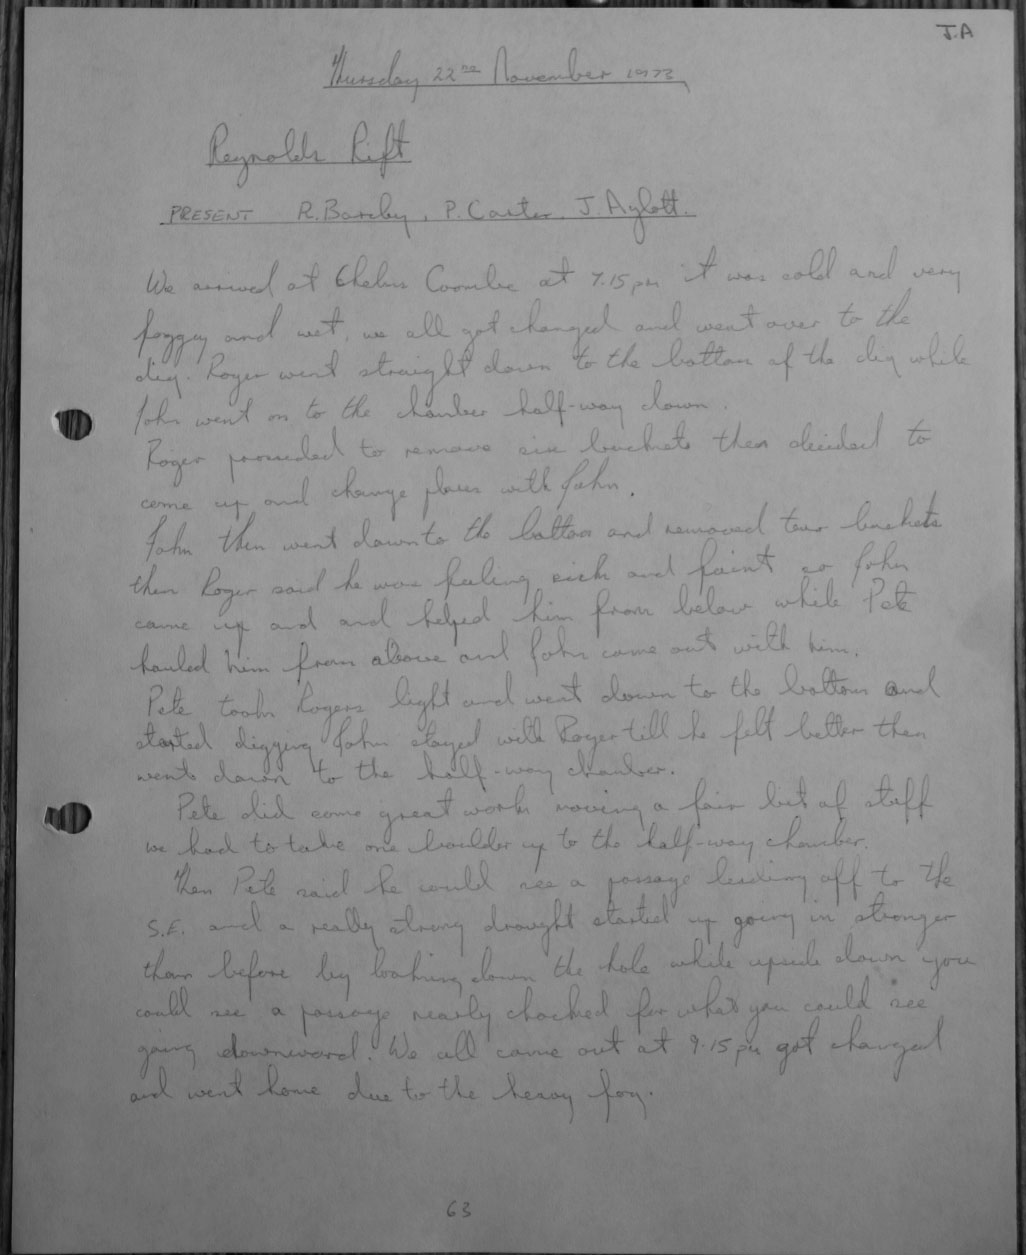 J.A
Thursday 22nd November 1973
Reynolds Rift
PRESENT R. Barcley, P. Carter, J. Aylott.
We arrived at Chelms Coombe at 7.15pm it was cold and very
foggy and wet, we all got changed and went over to the
dig. Roger went straight down to the bottom of the dig while
John went on to the chamber half-way down.
Roger proseeded to remove six buckets then decided to
come up and change places with John.
John then went down to the bottom and removed four buckets
then Roger said he was feeling sick and faint so John
came up and and helped him from below while Pete
hauled him from above and John came out with him.
Pete took Rogers light and went down to the bottom and
started digging John stayed with Roger till he felt better then
went down to the half-way chamber.
Pete did some great work moving a fair bit of stuff
we had to take one boulder up to the half-way chamber.
Then Pete said he could see a passage leading off to the
S.E. and a really strong draught started up going in stronger
than before by looking down the hole while upside down you
could see a passage nearly chocked for what you could see
going downward. We all came out at 9.15pm got changed
and went home due to the heavy fog.
63